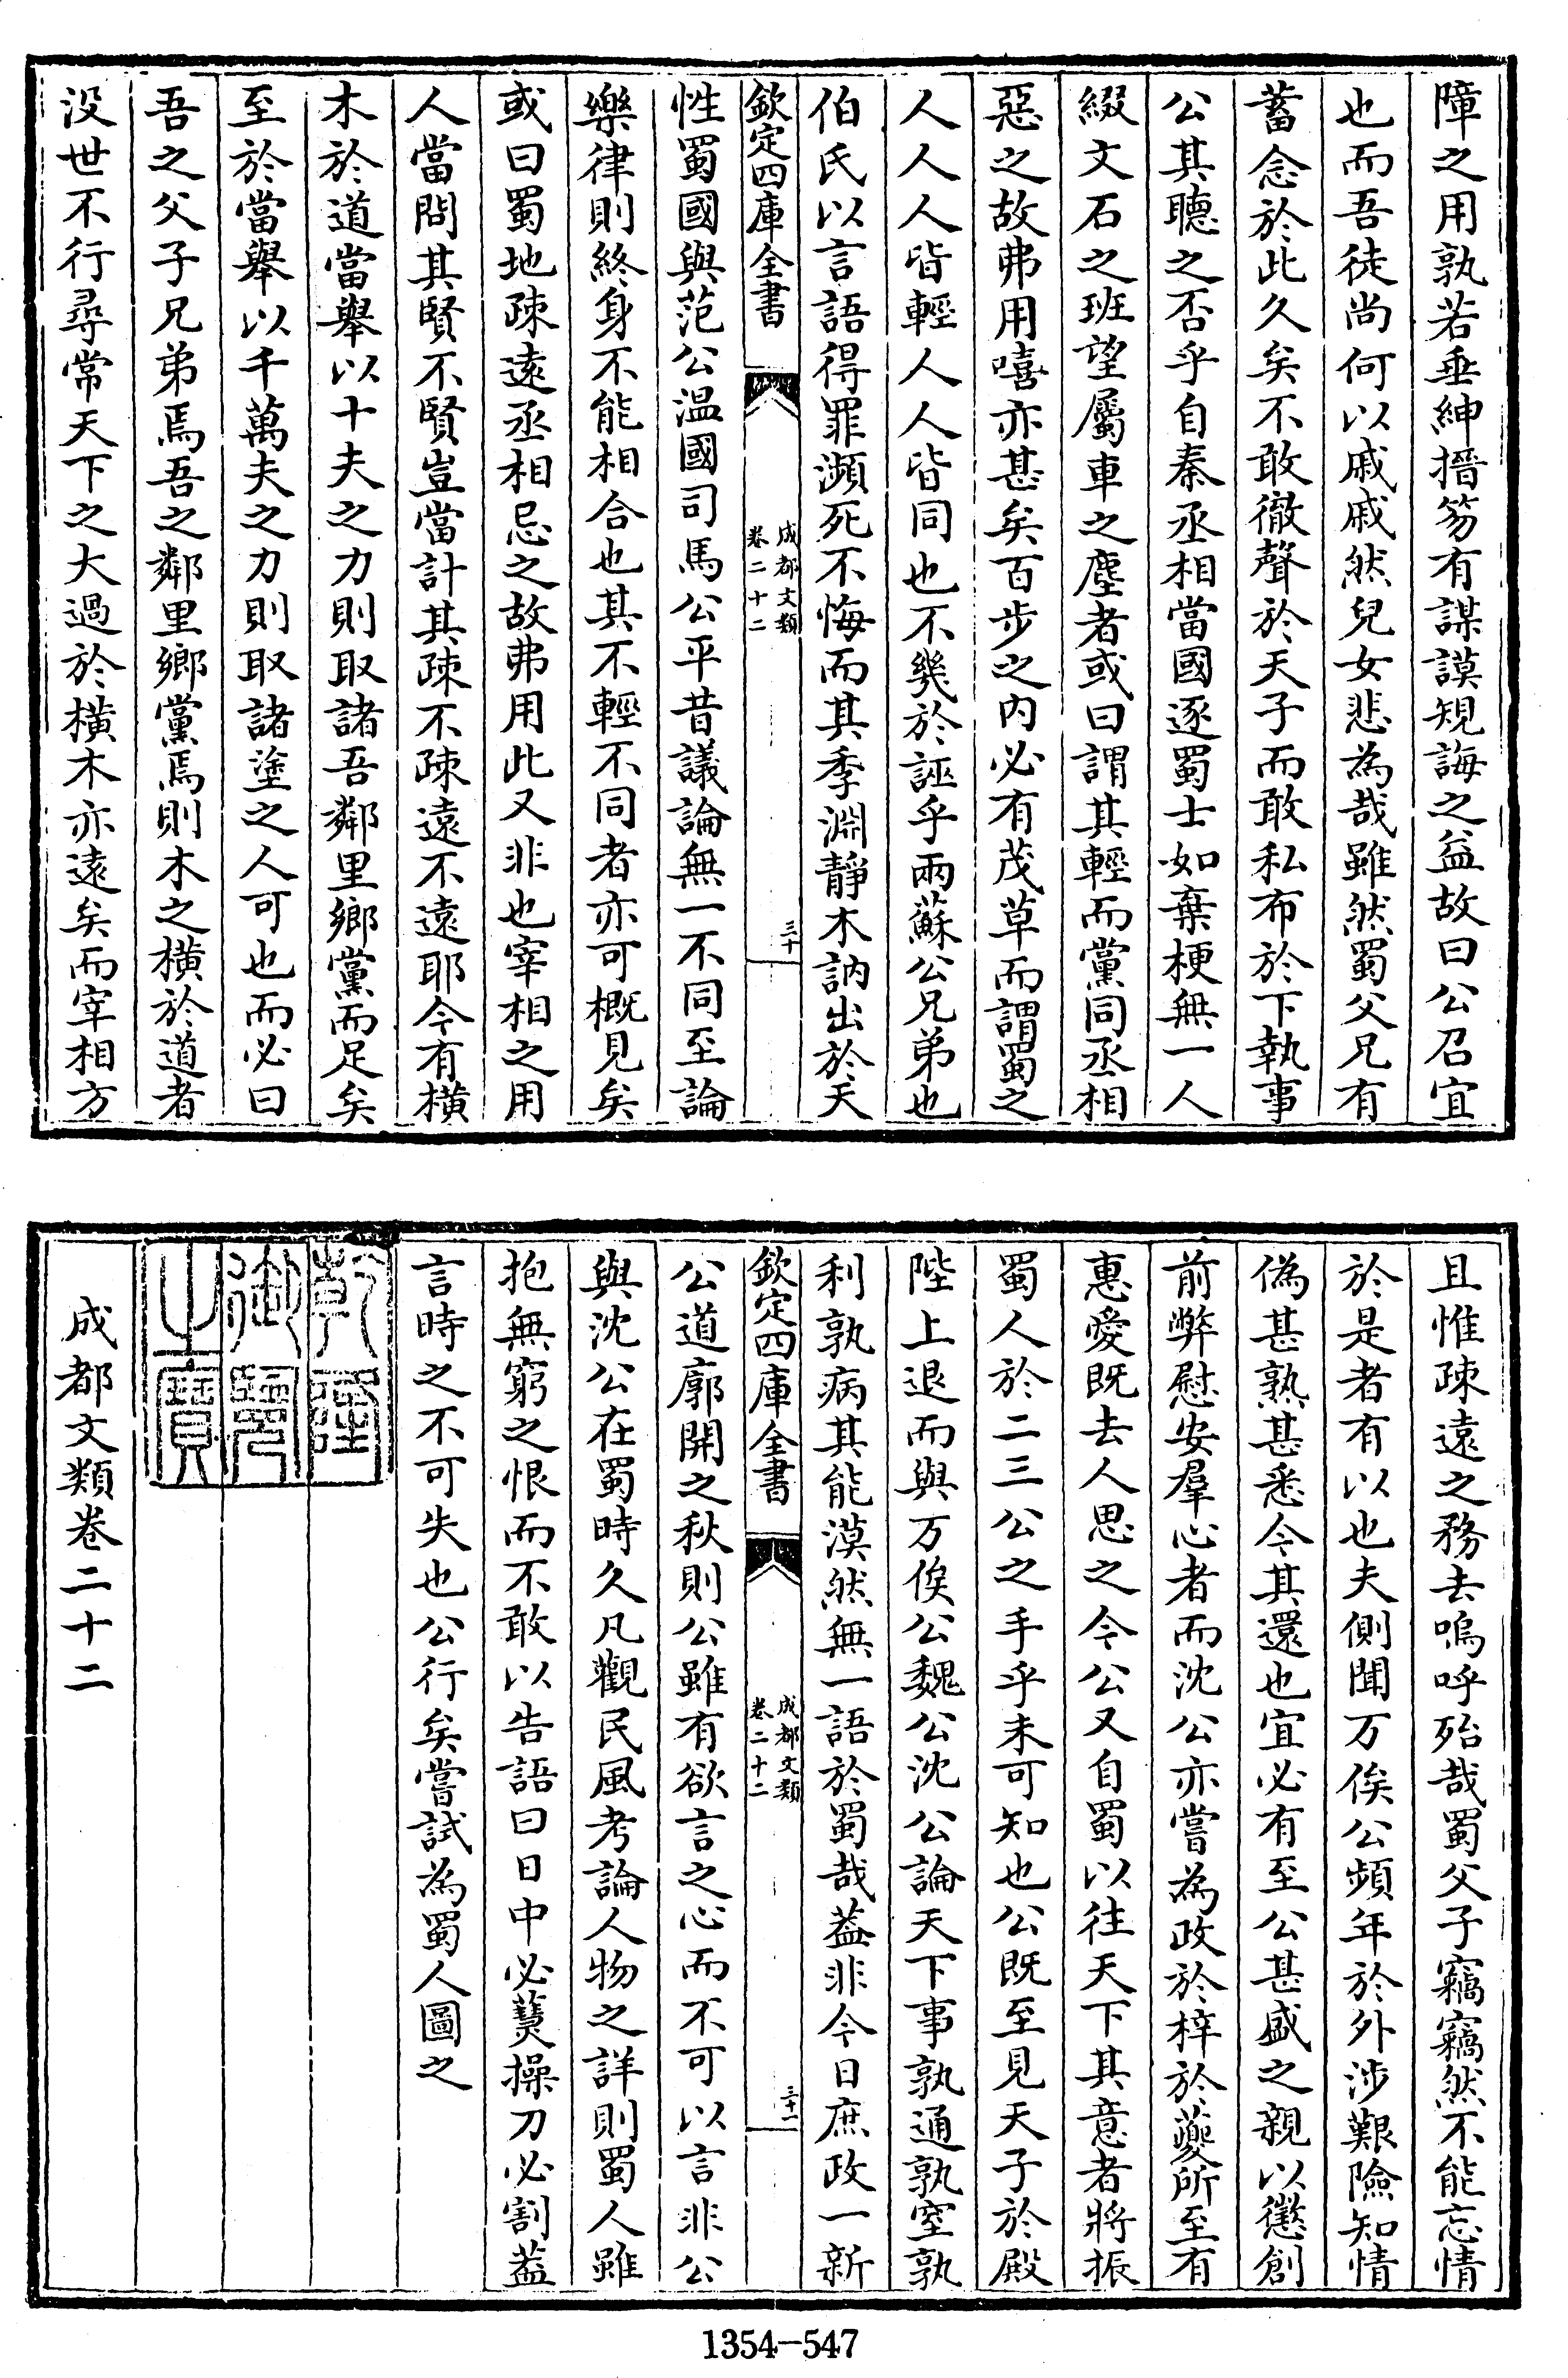 障之用孰若垂紳搢笏有謀謨規誨之益故曰公召宜
也而吾徒尚何以戚戚然兒女悲為哉雖然蜀父兄有
蓄念於此久矣不敢徹聲於天子而敢私布於下執事
公其聽之否乎自秦丞相當國逐蜀士如棄梗無一人
綴文石之班望屬車之塵者或曰謂其輕而黨同丞相
惡之故弗用嘻亦甚矣百步之内必有茂草而謂蜀之
人人人皆輕人人皆同也不幾於誣乎兩蘇公兄弟也
伯氏以言語得罪瀕死不悔而其季淵靜木訥出於天
欽定四庫全書
成都文類
卷二十二
三十
性蜀國與范公温國司馬公平昔議論無一不同至論
樂律則終身不能相合也其不輕不同者亦可概見矣
或曰蜀地疎遠丞相忌之故弗用此又非也宰相之用
人當問其賢不賢豈當計其疎不疎遠不遠耶今有橫
木於道當舉以十夫之力則取諸吾鄰里鄉黨而足矣
至於當舉以千萬夫之力則取諸塗之人可也而必曰
吾之父子兄弟焉吾之鄰里鄉黨焉則木之橫於道者
没世不行尋常天下之大過於橫木亦遠矣而宰相方
且惟疎遠之務去嗚呼殆哉蜀父子竊竊然不能忘情
於是者有以也夫側聞万俟公頻年於外涉艱險知情
偽甚熟甚悉今其還也宜必有至公甚盛之親以懲創
前弊慰安羣心者而沈公亦嘗為政於梓於夔所至有
惠愛既去人思之今公又自蜀以往天下其意者將振
蜀人於二三公之手乎未可知也公既至見天子於殿
陛上退而與万俟公魏公沈公論天下事孰通孰窒孰
利孰病其能漠然無一語於蜀哉葢非今日庶政一新
欽定四庫全書
成都文類
卷二十二
三十一
公道廓開之秋則公雖有欲言之心而不可以言非公
與沈公在蜀時久凡觀民風考論人物之詳則蜀人雖
抱無窮之恨而不敢以告語曰日中必熭操刀必割葢
言時之不可失也公行矣嘗試為蜀人圖之
乾隆
御覽
之寶
成都文類卷二十二
1354-547